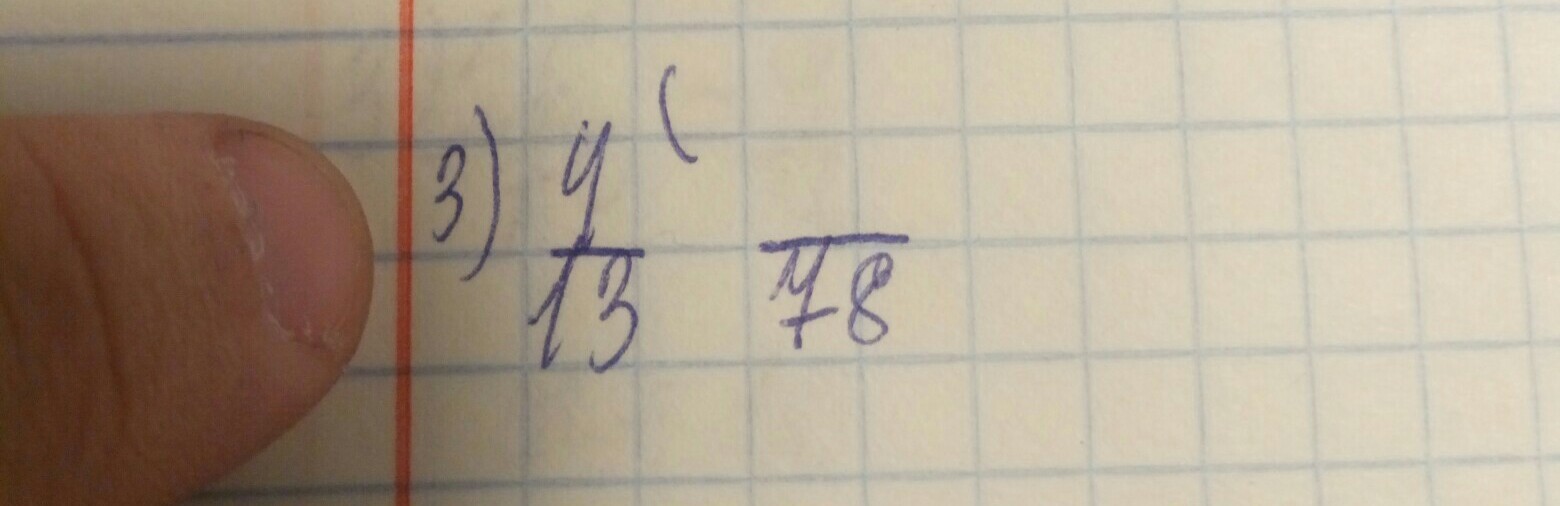 3) y (
13 78